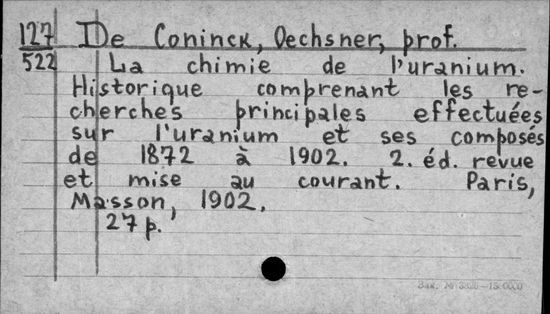 127 De Coninck, Oechsner, prof.
522 La chimie de l'uranium.
Historique comprenant les re-
cherches principales effectuées
sur l'uranium et ses composés
de 1872 à 1902. 2. éd. revue
et mise au courant. Paris,
Masson, 1902.
27 p.